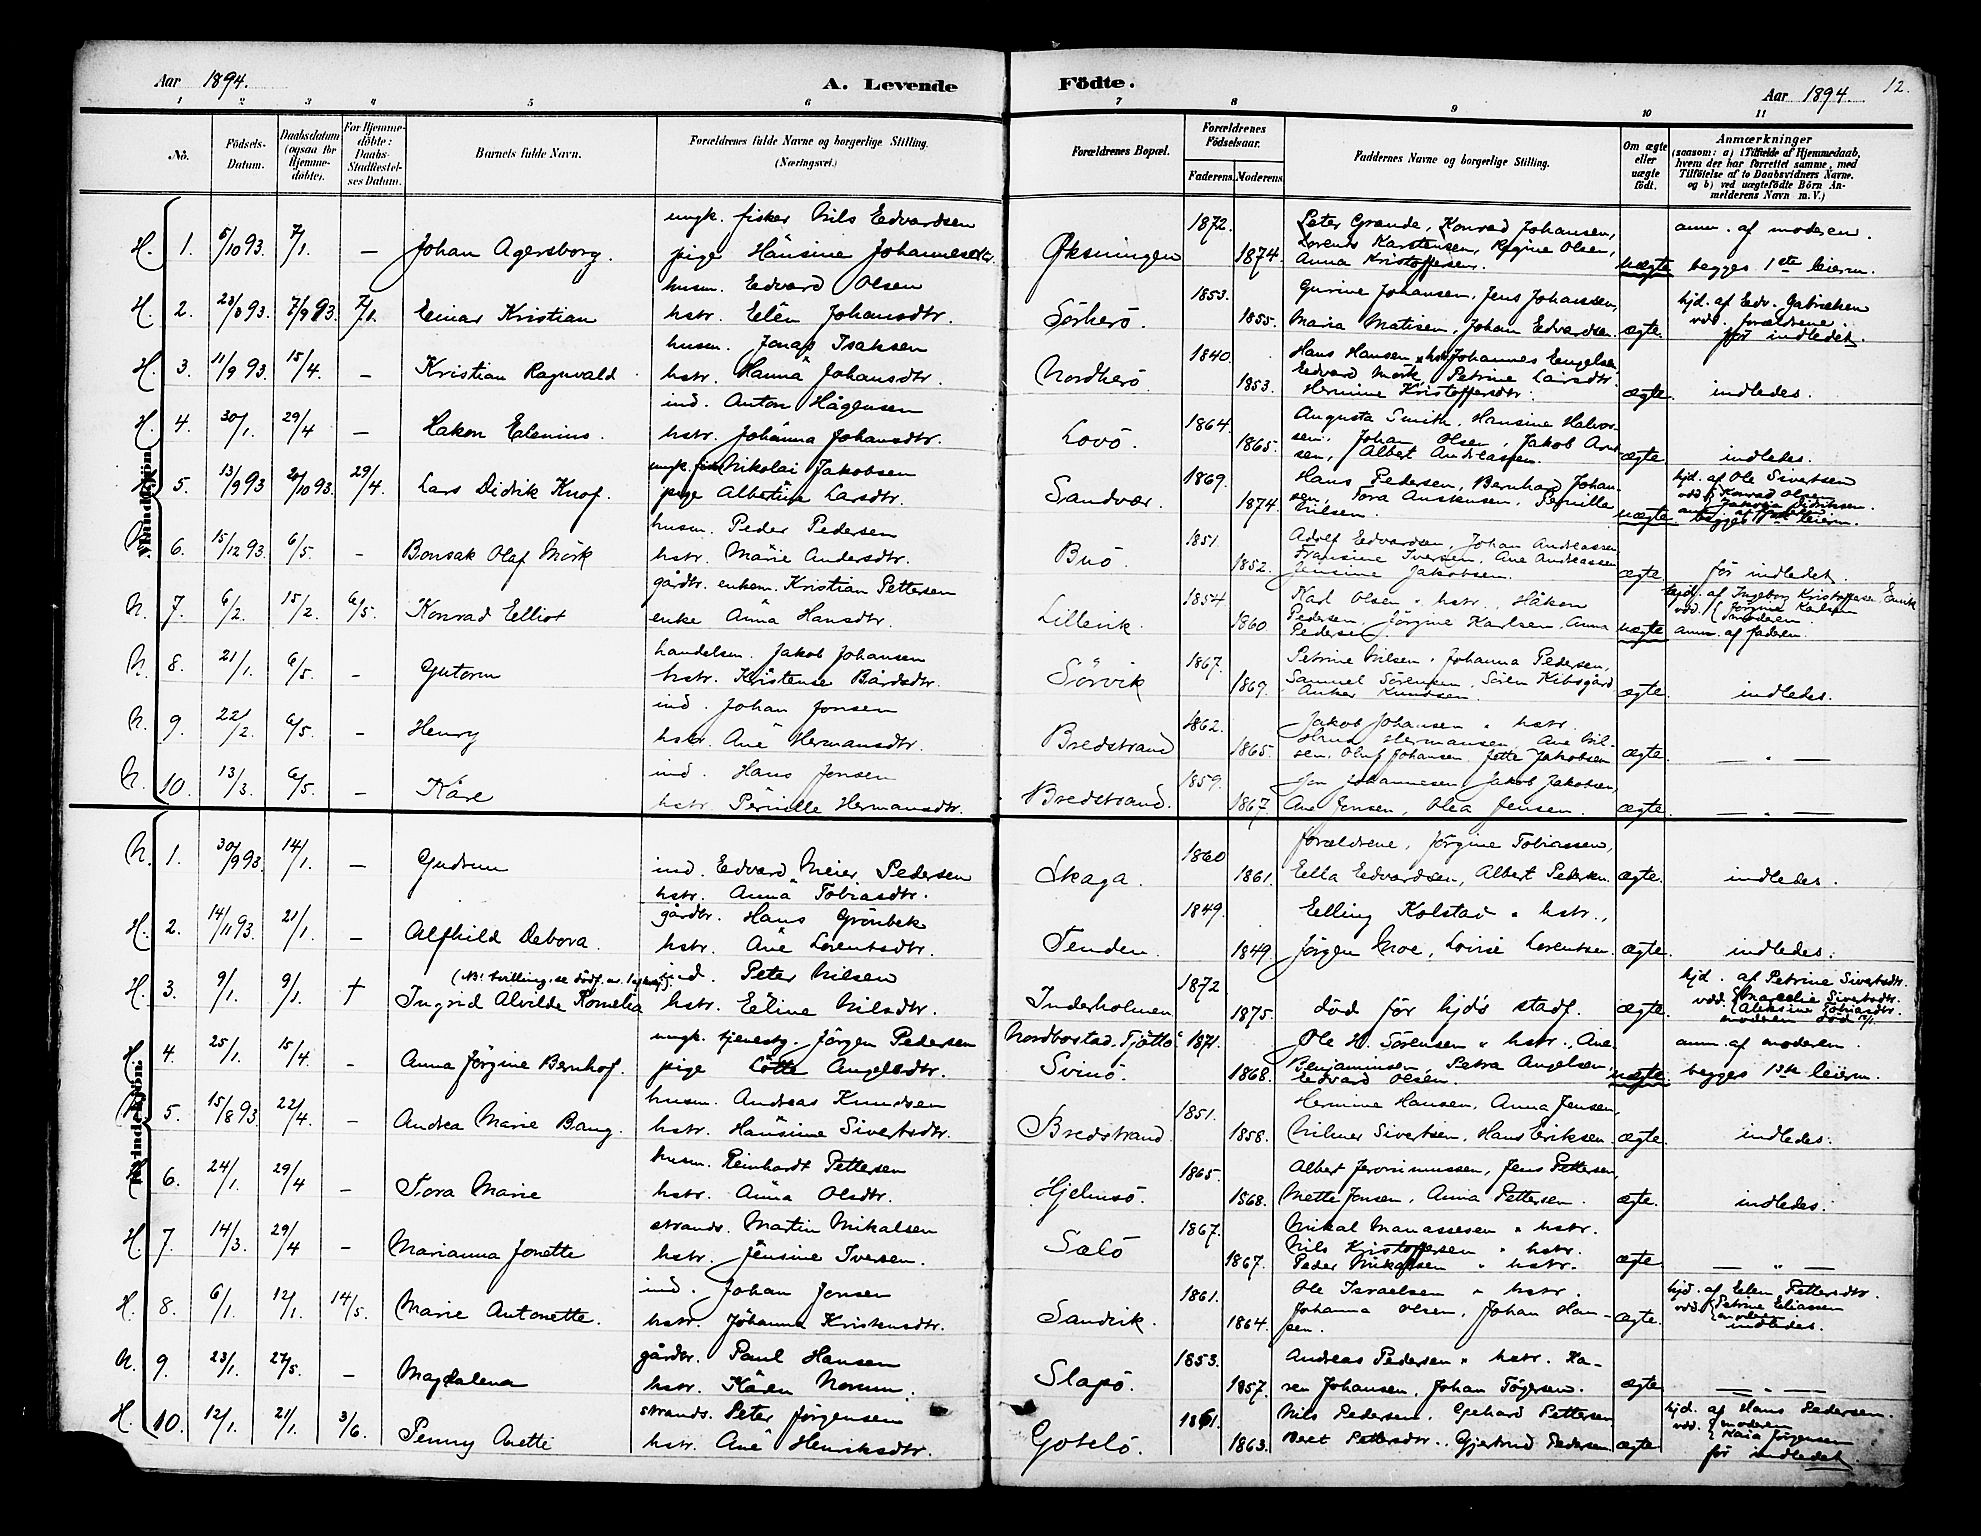 Aar 1894. A. Levende Födte. Aar 1894. 12.
1 2 3 4 5 6 7 8 9 10 11
Nö. Födsels-Datum. Daabsdatum (ogsaa for Hjemme-döbte). For Hjemme-döbte: Daabs-Stadfæstel-ses Datum. Barnets fulde Navn. Forældrenes fulde Navne og borgerlige Stilling. (Næringsvei.) Forældrenes Bopæl. Forældrenes Födselsaar. Faderens. Moderens. Faddernes Navne og borgerlige Stilling. Om ægte eller uægte födt. Anmærkninger (saasom: a) i Tilfælde af Hjemmedaab, hvem der har forrettet samme, med Tilföielse af to Daabsvidners Navne, og b) ved uægtefödte Börn An-melderens Navn m. V.)
Mandkjön.
ungk. fisker Nils Edvardsen 1872. Peter Grande, Konrad Johansen, anm. af moderen.
H. 1. 5/10 93. 7/1. — Johan Agersborg. pige Hansine Johannesdtr. Öksningen 1874. Lorents Karstensen, Regine Olsen, Anna Kristoffersen. uægte begges 1ste leierm.
husm. Edvard Olsen 1853. Gurine Johansen, Jens Johansen, hjd. af Edv. Gabrielsen
H. 2. 23/8 93. 7/9 93. 7/1. Einar Kristian hstr. Elen Johansdtr. Sörherö. 1855. Maria Matisen, Johan Edvardsen. ægte. vdd. forældrene. för indledet.
husm. Jonas Isaksen 1840. Hans Hansen, Johannes Engelsen,
H. 3. 11/9 93. 15/4. — Kristian Ragnvald hstr. Hanna Johansdtr. Nordherö. 1853. Edvard Mörk, Petrine Larsdtr. Hermine Kristoffersdtr. ægte. indledes.
ind. Anton Hågensen 1864. Augusta Smith, Hansine Halvor-
H. 4. 30/1. 29/4 — Hakon Edenius. hstr. Johanna Johansdtr. Lovö. 1865. sen, Johan Olsen, Jakob Arnt-sen, Albert Andreassen. ægte indledes.
ungk. fisk. Nikolai Jakobsen 1869. Hans Pedersen, Bernhard Johan- hjd. af Ole Sivertsen
5. 13/9 93 20/10 93. 29/4. Lars Didrik Knof. pige Albertine Larsdtr. Sandvær. 1874. sen, Tora Antonsen, Pernille Nilsen. uægte. vdd. Konrad Olsen begges 1ste leierm.
husm. Peder Pedersen 1851. Adolf Edvardsen, Johan Andreassen
N. 6. 15/12 93. 6/5. — Bonsak Olaf Mörk hstr. Marie Andersdtr. Buö. 1852. Fransine Iversen, Ane Andreassen Jensine Jakobsen. ægte för indledet.
gårdbr. enkem. Kristian Pettersen 1854 Karl Olsen " hstr., Håkon hjd. af Ingeborg Kristoffersen
N. 7. 6/2. 15/2. 6/5. Konrad Elliot enke Anna Hansdtr. Lillevik. 1860 Pedersen, Jörgine Karlsen, Anna Pedersen. uægte vdd. Jörgine Karlsen moderen. anm. af faderen.
handelsm. Jakob Johansen 1867. Petrine Nilsen, Johanna Pedersen,
N. 8. 21/1. 6/5. — Gutorm hstr. Kristense Bårdsdtr. Sörvik 1869. Samuel Sörensen, Sören Kibsgård Anker Knudsen. ægte indledes.
ind. Johan Jonsen 1862. Jakob Johansen " hstr.
N. 9. 22/2. 6/5. — Henry hstr. Ane Hermansdtr. Bredstrand 1865. Hermansen, Ane Nil-sen, Oluf Johansen, Jette Jakobsen ægte. — " —
ind. Hans Jensen 1859. Jon Johannesen, Jakob Jakobsen,
N. 10. 13/3. 6/5. — Kåre hstr. Pernille Hermansdtr. Bredstrand. 1867. Ane Jensen, Olea Jensen. ægte. — " —
Kvindekjön.
forældrene, Jörgine Tobiassen,
N. 1. 30/9 93. 14/1. — Gudrun ind. Edvard Meier Pedersen Skaga. 1860 1861. Ella Edvardsen, Albert Pedersen. ægte. indledes.
hstr. Anna Tobiasdtr.
gårdbr. Hans Grönbek 1849. Elling Kolstad " hstr.,
H. 2. 14/11 93. 21/1. — Alfhild Debora. hstr. Ane Lorentsdtr. Tenden. 1849. Jörgen Moe, Lovise Lorentsen ægte. indledes.
ind. Peter Nilsen 1872 hjd. af Petrine Sivertsdtr.
H. 3. 9/1. 9/1. † Ingrid Alvilde Kornelia hstr. Eline Nilsdtr. Inderholmen 1875. död för hjd's stadf. ægte. vdd. Marselie Sivertsdtr. Aleksine Tobiasdtr. moderen död
ungk. tjenestg. Jörgen Pedersen Nordbostad. Tjöttö 1871. Ole H. Sörensen " hstr., Ane anm. af moderen.
H. 4. 25/1. 15/4. — Anna Jörgine Bernhof. pige Lötte Angelsdtr. Svinö. 1868. Benjaminsen, Petra Angelsen, Edvard Olsen. uægte begges 1ste leierm.
husm. Andreas Knudsen 1851. Hermine Hansen, Anna Jensen,
5. 15/8 93. 22/4. — Andrea Marie Bang. hstr. Hansine Sivertsdtr. Bredstrand. 1858. Hilmer Sivertsen, Hans Eriksen. ægte. indledes.
husm. Reinhardt Pettersen 1865. Albert Jeronimussen, Jens Pettersen,
6. 24/1. 29/4 — Tora Marie hstr. Anna Olsdtr. Hjelmsö. 1868. Mette Jonsen, Anna Pettersen. ægte. indledes.
strands. Martin Mikalsen 1867. Mikal Manassesen " hstr.
H. 7. 14/3. 29/4 — Marianna Jonette hstr. Jensine Iversen. Salö 1867. Nils Kristoffersen " hstr. Peder Mikalsen " hstr. ægte. — " —
ind. Johan Jensen 1861. Ole Israelsen " hstr. hjd. af Elen Pettersdtr.
H. 8. 6/1. 12/1. 14/5. Marie Antonette. hstr. Johanna Kristensdtr. Sandvik. 1864. Johanna Olsen, Johan Han-sen. ægte. vdd. Petrine Eliassen moderen indledes.
gårdbr. Paul Hansen 1853. Andreas Pedersen " hstr. Ka-
N. 9. 23/1. 27/5. — Magdalena hstr. Karen Norum. Slapö. 1857. ren Johansen, Johan Tögersen. ægte — " —
strands. Peter Jörgensen 1861. Nils Pedersen, Gehard Pettersen hjd. af Hans Pedersen.
H. 10. 12/1. 21/1. 3/6. Penny Anette hstr. Ane Henriksdtr. Gotelö. 1863. Beret Pettersdtr., Gjertrud Pedersen ægte vdd. moderen Kaia Jörgensen för indledet.